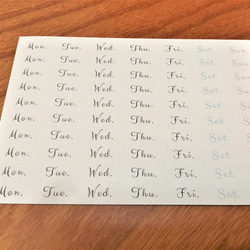 Mon. Tue. Wed. Thu. Fri. Sat. Sun.
Mon. Tue. Wed. Thu. Fri. Sat.
Mon. Tue. Wed. Thu. Fri. Sat.
Mon. Tue. Wed. Thu. Fri. Sat.
Mon. Tue. Wed. Thu. Fri. Sat.
Mon. Tue. Wed. Thu. Fri. Sat.
Mon. Tue. Wed. Thu. Fri. Sat.
Mon. Tue. Wed. Thu. Fri. Sat.
Mon. Tue. Wed. Thu. Fri. Sat.
Mon. Tue. Wed. Thu. Fri. Sat.